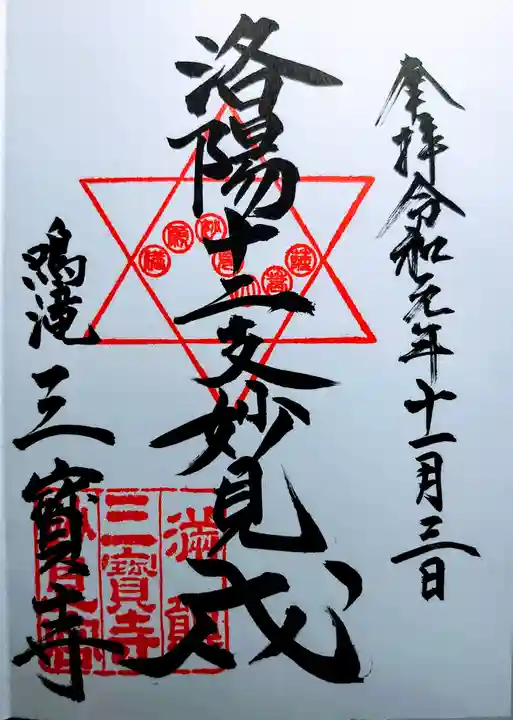 奉拝令和元年十一月三日
洛陽十二支妙見戌
鳴滝三寳寺
三寳寺